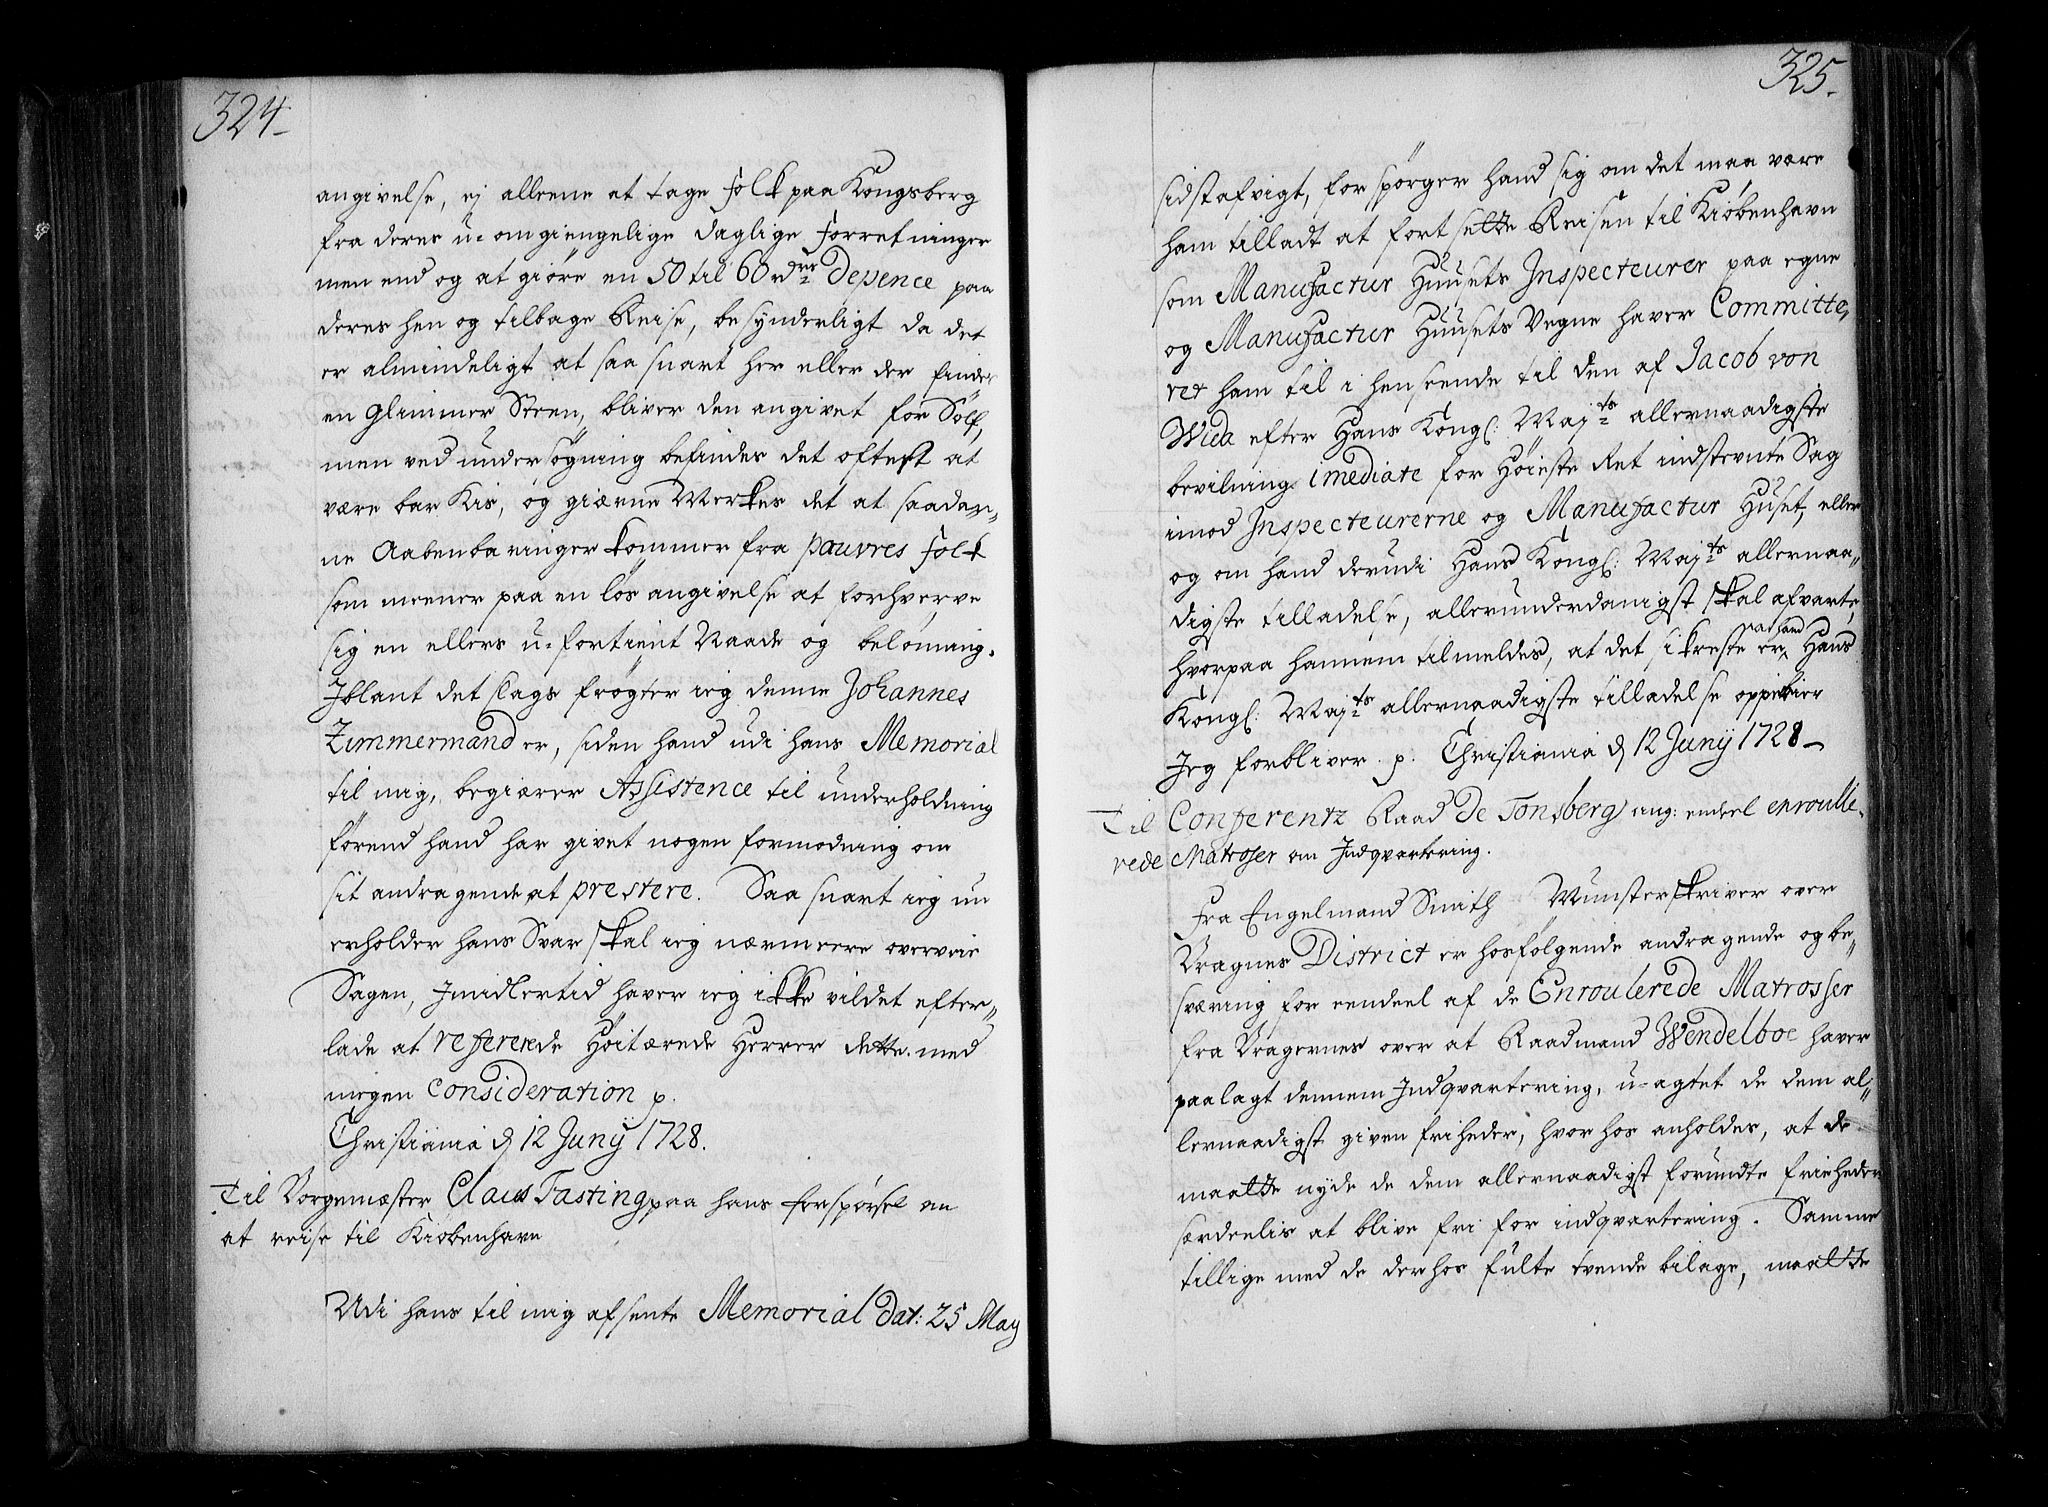 324.
angivelse, ej alleene at tage folk paa Kongsberg
fra deres u-omgiengelige daglige Forretninger
men end og at giøre en 50 til 60 rdrs depence paa
deres hen og tilbage Reise, besynderligt da det
er almindeligt at saa snart her eller der findes
en Glimmer Steen, bliver den angivet for Sølf,
men ved undersøgning befindes det oftest at
være bar Kis, og gierne Merkes det at saadan-
ne Aabenbaringer kommer fra pauvres folk
som meener paa en løs angivelse at forhverve
sig en ellers u-fortient Naade og belønning.
Iblant det slags frøgter ieg denne Johannes
Zimmermand er, siden hand udi hans Memorial
til mig, begiærer Assistence til underholdning
førend hand har givet nogen formodning om
sit andragende at prestere. Saa snart ieg nu
erholder hans Svar skal ieg nærmeere overveie
Sagen, Imidlertid haver ieg ikke vildet efter-
lade at referere de Høitærede Herrer dette med
megen Consideration p.
Christiania d 12 Junij 1728.
Til Borgemæster Claus Tasting paa hans forspørsel om
at reise til Kiøbenhavn
Udi hans til mig afsente Memorial dat: 25 May
325.
sidstafvigt, forspørger hand sig om det maa være
ham tilladt at fortsette Reisen til Kiøbenhavn
som Manufactur Huusets Inspecteurer paa egne
og Manufactur Huusets Vegne haver Committe-
ret ham til i henseende til den af Jacob von
Wida efter Hans Kongl: Majts allernaadigste
bevilning imediate for Høieste Ret indstevnte Sag
imod Inspecteurerne og Manufactur Huset, eller
og om hand derudi Hans Kongl: Majts allernaa-
digste tilladelse, allerunderdanigst skal afvarte,
hvorpaa hannem tilmeldes, at det sikreste er, at hand Hans
Kongl: Majts allernaadigste tilladelse oppebier
Jeg forbliver p. Christiania d 12 Junij 1728
Til Conferentz Raad De Tonsberg ang: endeel enroulle-
rede Matroser om Indqvartering.
Fra Engelmand Smith Munsterskriver over
Bragnes District er hosfølgende andragende og be-
sværing for eendeel af de Enroulerede Matrosser
fra Bragernes over at Raadmand Wendelboe haver
paalagt dennem Indqvartering, u-agtet de dem al-
lernaadigst given friheder, hvorhos anholdes, at de
maatte nyde de dem allernaadigst forundte friheder
særdeelis at blive fri for indqvartering. Samme
tillige med de derhos fulte tvende bilage, maatte